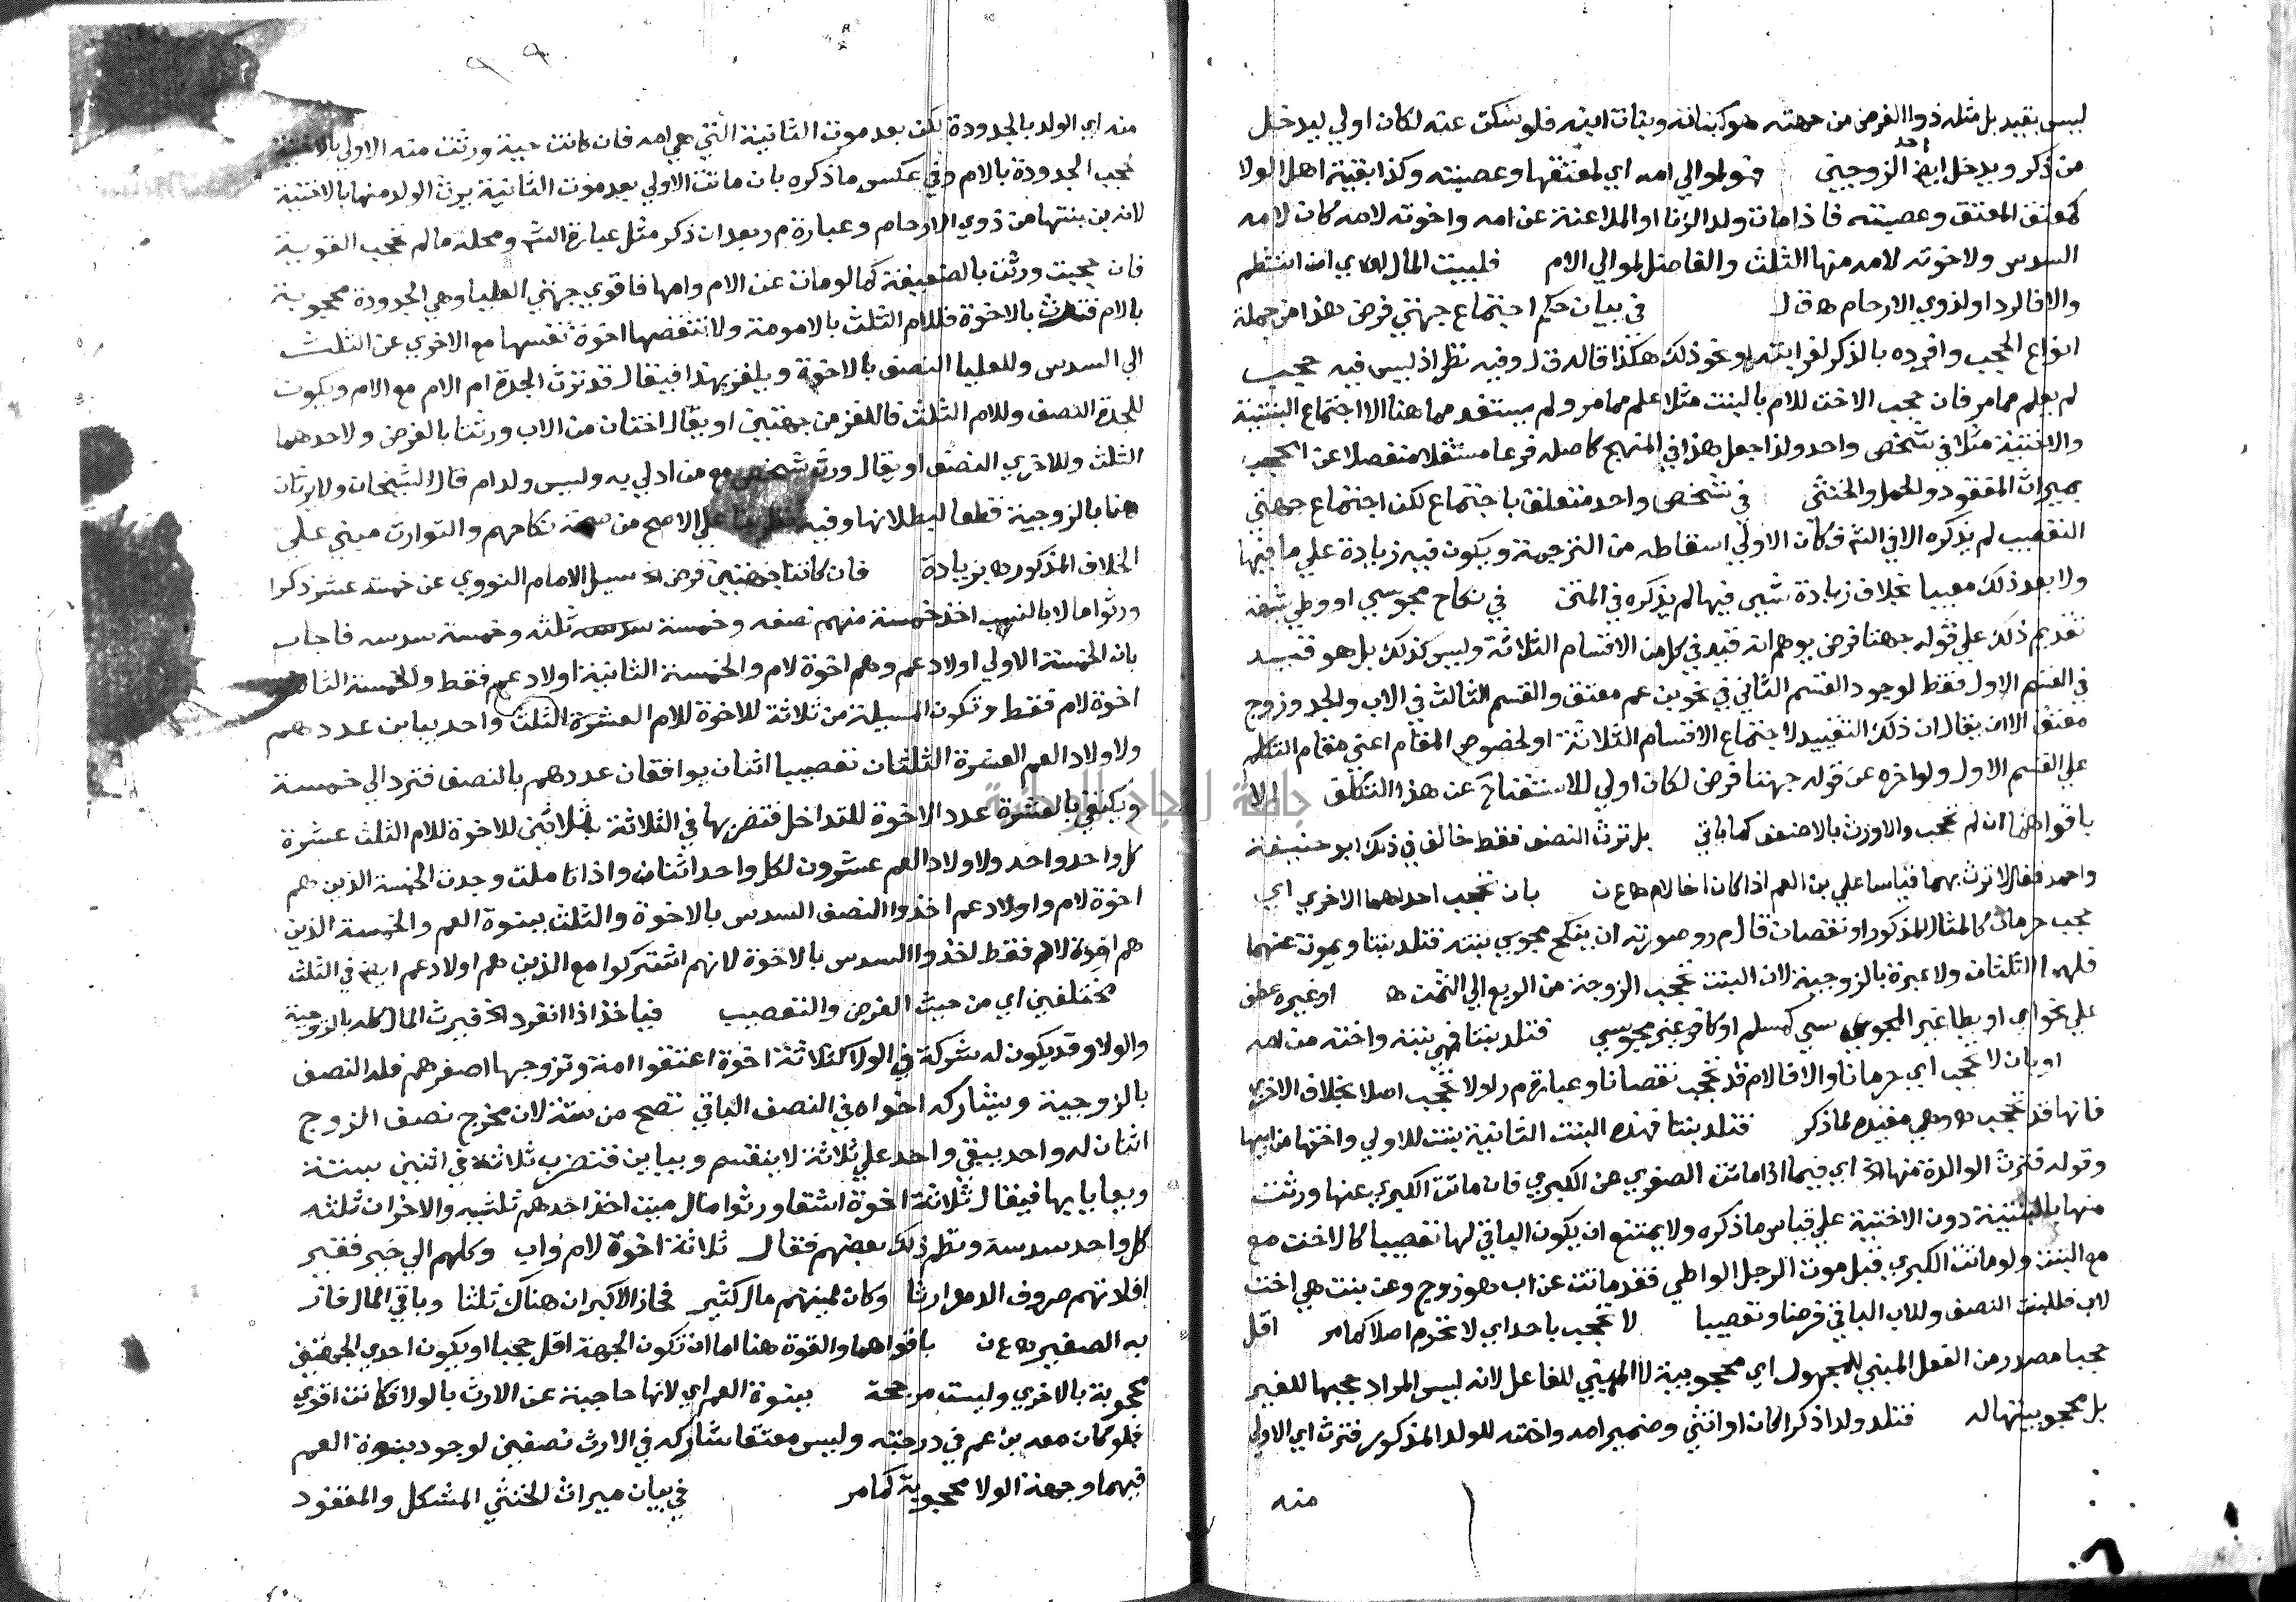 ليس بقيد بل مثله ذوا الفرض من جهته هو كبناته وبنات ابنه فلو سكت عنه لكان اولي ليدخل
من ذكر ويدخل ايض احد الزوجين فهو لموالي امه اي لمعتقها وعصبته وكذا بقية اهل الولا
كمعتق المعتق وعصبته فاذا مات ولد الزنا او الملاعنة عن امه واخوته لامه كان لامه
السدس ولاخوته لامه منها الثلث والفاضل لموالي الام فلبيت المال اي ان انتظم
والا فالرد او لذوي الارحام ه ق ل في بيان حكم اجتماع جهتي فرض هذا من جملة
انواع الحجب وافرده بالذكر لغرابته او نحو ذلك هكذا قاله ق ل وفيه نظر اذ ليس فيه حجب
لم يعلم مما مر فان حجب الاخت للام بالبنت مثلا علم مما مر ولم يستفد مما هنا الا اجتماع البنتية
والاختية مثلا في شخص واحد ولذا جعل هذا في المنهج كاصله فرعا مستقلا منفصلا عن الحجب
بميراث المفقود والحمل والخنثي في شخص واحد متعلق باجتماع لكن اجتماع جهتي
التعصيب لم يذكره الا في الشم فكان الاولي اسقاطه من الترجمة ويكون فيه زيادة علي ما فيها
ولا يعد ذلك معيبا بخلاف زيادة شيي فيها لم يذكره في المتن في نكاح مجوسي او وطي شبهة
تقديم ذلك علي قوله جهتا فرض يوهم انه قيد في كل من الاقسام الثلاثة وليس كذلك بل هو قيد
في القسم الاول فقط لوجود القسم الثاني في نحو بن عم معتق والقسم الثالث في الاب والجد وزوج
معتق الا ان يقال ان ذلك التقييد لاجتماع الاقسام الثلاثة او لخصوص المقام اعني مقام التكلم
علي القسم الاول ولو اخره عن قوله جهتا فرض لكان اولي للاستغناء عن هذا التكلف الا
باقواهما ان لم تحجب والا ورث بالاضعف كما ياتي بل ترث النصف فقط خالف في ذلك ابو حنيفة
واحمد فقالا ترث بهما قياسا علي بن العم اذا كان اخا لام ه ع ن بان تحجب احداهما الاخري اي
حجب حرمان كالمثال المذكور او نقصان قال م ر وصورته ان ينكح مجوسي بنته فتلد بنتا ويموت عنهما
فلهما الثلثان ولا عبرة بالزوجية لان البنت تحجب الزوجة من الربع الي الثمن ه او غيره عطف
علي نحو اي او يطا غير المجوسي سبي كمسلم او كافر غير مجوسي فتلد بنتا فهي بنته واخته من امه
او بان لا تحجب اي حرمانا والا فالام قد تحجب نقصانا وعبارة م ر اولا تحجب اصلا بخلاف الاخري
فانها قد تحجب ه وهي مفيدة لما ذكر فتلد بنتا فهذه البنت الثانية بنت للاولي واختها من ابيها
وقوله فترث الوالدة منها الخ اي فيما اذا ماتت الصغري عن الكبري فان ماتت الكبري عنها ورثت
منها بالبنتية دون الاختية علي قياس ما ذكره ولا يمتنع ان يكون الباقي لها تعصيبا كالاخت مع
مع البنت ولو ماتت الكبري قبل موت الرجل الواطي فقد ماتت عن اب هو زوج وعن بنت هي اخت
لاب فللبنت النصف وللاب الباقي فرضا وتعصيبا لا تحجب باحد اي لا تحرم اصلا كما مر اقل
حجبا مصدر من الفعل المبني للمجهول اي محجوبية لا المبني للفاعل لانه ليس المراد حجبها للغير
بل محجوبيتها له فتلد ولدا ذكرا كان او انثي وضمير امه واخته للولد المذكور فترث اي الاولي
منه
منه اي الولد بالجدودة لكن بعد موت الثانية التي هي امه فان كانت حية ورثت منه الاولي بالاختية
لحجب الجدودة بالام وفي عكس ما ذكره بان ماتت الاولي بعد موت الثانية يرث الولد منها بالاختية
لانه بن بنتها من ذوي الارحام وعبارة م ر بعد ان ذكر مثل عبارة الشم ومحله ما لم تحجب القوية
فان حجبت ورثت بالضعيفة كما لو مات عن الام وامها فاقوي جهتي العليا وهي الجدودة محجوبة
بالام فترث بالاخوة فللام الثلث بالامومة ولا تنقصها اخوة نفسها مع الاخري عن الثلث
الي السدس وللعليا النصف بالاخوة ويلغز بهذا فيقال قد ترث الجدة ام الام مع الام ويكون
للجدة النصف وللام الثلث فاللغز من جهتين او يقال اختان من الاب ورثتا بالفرض ولاحدهما
الثلث وللاخري النصف او يقال ورث شخص مع من ادلي به وليس ولد ام قال الشيخان ولا يرثان
هنا بالزوجية قطعا لبطلانها وفيه علي الاصح من صحة نكاحهم والتوارث مبني علي
الخلاف المذكور ه بزيادة فان كانتا جهتي فرض الخ سيل الامام النووي عن خمسة عشر ذكرا
ورثوا مالا بالنسب اخذ خمسة منهم نصفه وخمسة ثلثه وخمسة سدسه فاجاب
بان الخمسة الاولي اولاد عم وهم اخوة لام والخمسة الثانية اولاد عم فقط والخمسة الثالثة
اخوة لام فقط وتكون المسيلة من ثلاثة للاخوة للام العشرة الثلث واحد يباين عددهم
ولاولاد العم العشرة الثلثان تعصيبا اثنان يوافقان عددهم بالنصف فترد الي خمسة
ويكتفي بالعشرة عدد الاخوة للتداخل فتضربها في الثلاثة بثلاثين للاخوة للام الثلث عشرة
كل واحد واحد ولاولاد العم عشرون لكل واحد اثنان واذا تاملت وجدت الخمسة الذين هم
اخوة لام واولاد عم اخذوا النصف السدس بالاخوة والثلث ببنوة العم والخمسة الذين
هم اخوة لام فقط اخذوا السدس بالاخوة لانهم اشتركوا مع الذين هم اولاد عم ايض في الثلث
مختلفين اي من حيث الفرض والتعصيب فياخذ اذا انفرد الخ فيرث المال كله بالزوجية
والولا وقد يكون له شركة في الولا كثلاثة اخوة اعتقوا امة وتزوجها اصغرهم فله النصف
بالزوجية ويشاركه اخواه في النصف الباقي تصح من ستة لان مخرج نصف الزوج
اثنان له واحد يبقي واحد علي ثلاثة لا ينقسم ويباين فتضرب ثلاثة في اثنين بستة
ويعايا بها فيقال ثلاثة اخوة اشقا ورثوا مال ميت اخذ احدهم ثلثيه والاخران ثلثه
كل واحد سدسه ونظم ذلك بعضهم فقال ثلاثة اخوة لام واب وكلهم الي خير فقير
افلدتهم صروف الدهر ارثا وكان لميتهم مال كثير فحاز الاكبران هناك ثلثا وباقي المال فاز
به الصغير ه ع ن باقواهما والقوة هنا اما ان تكون الجهة اقل حجبا او يكون احدي الجهتين
محجوبة بالاخري وليست مرجحة ببنوة العم اي لانها حاجبة عن الارث بالولا فكانت اقوي
فلو كان معه بن عم في درجته وليس معتقا شاركه في الارث نصفين لوجود بنوة العم
فيهما وجهة الولا محجوبة كما مر في بيان ميراث الخنثي المشكل والمفقود
جامعة النجاح الوطنية